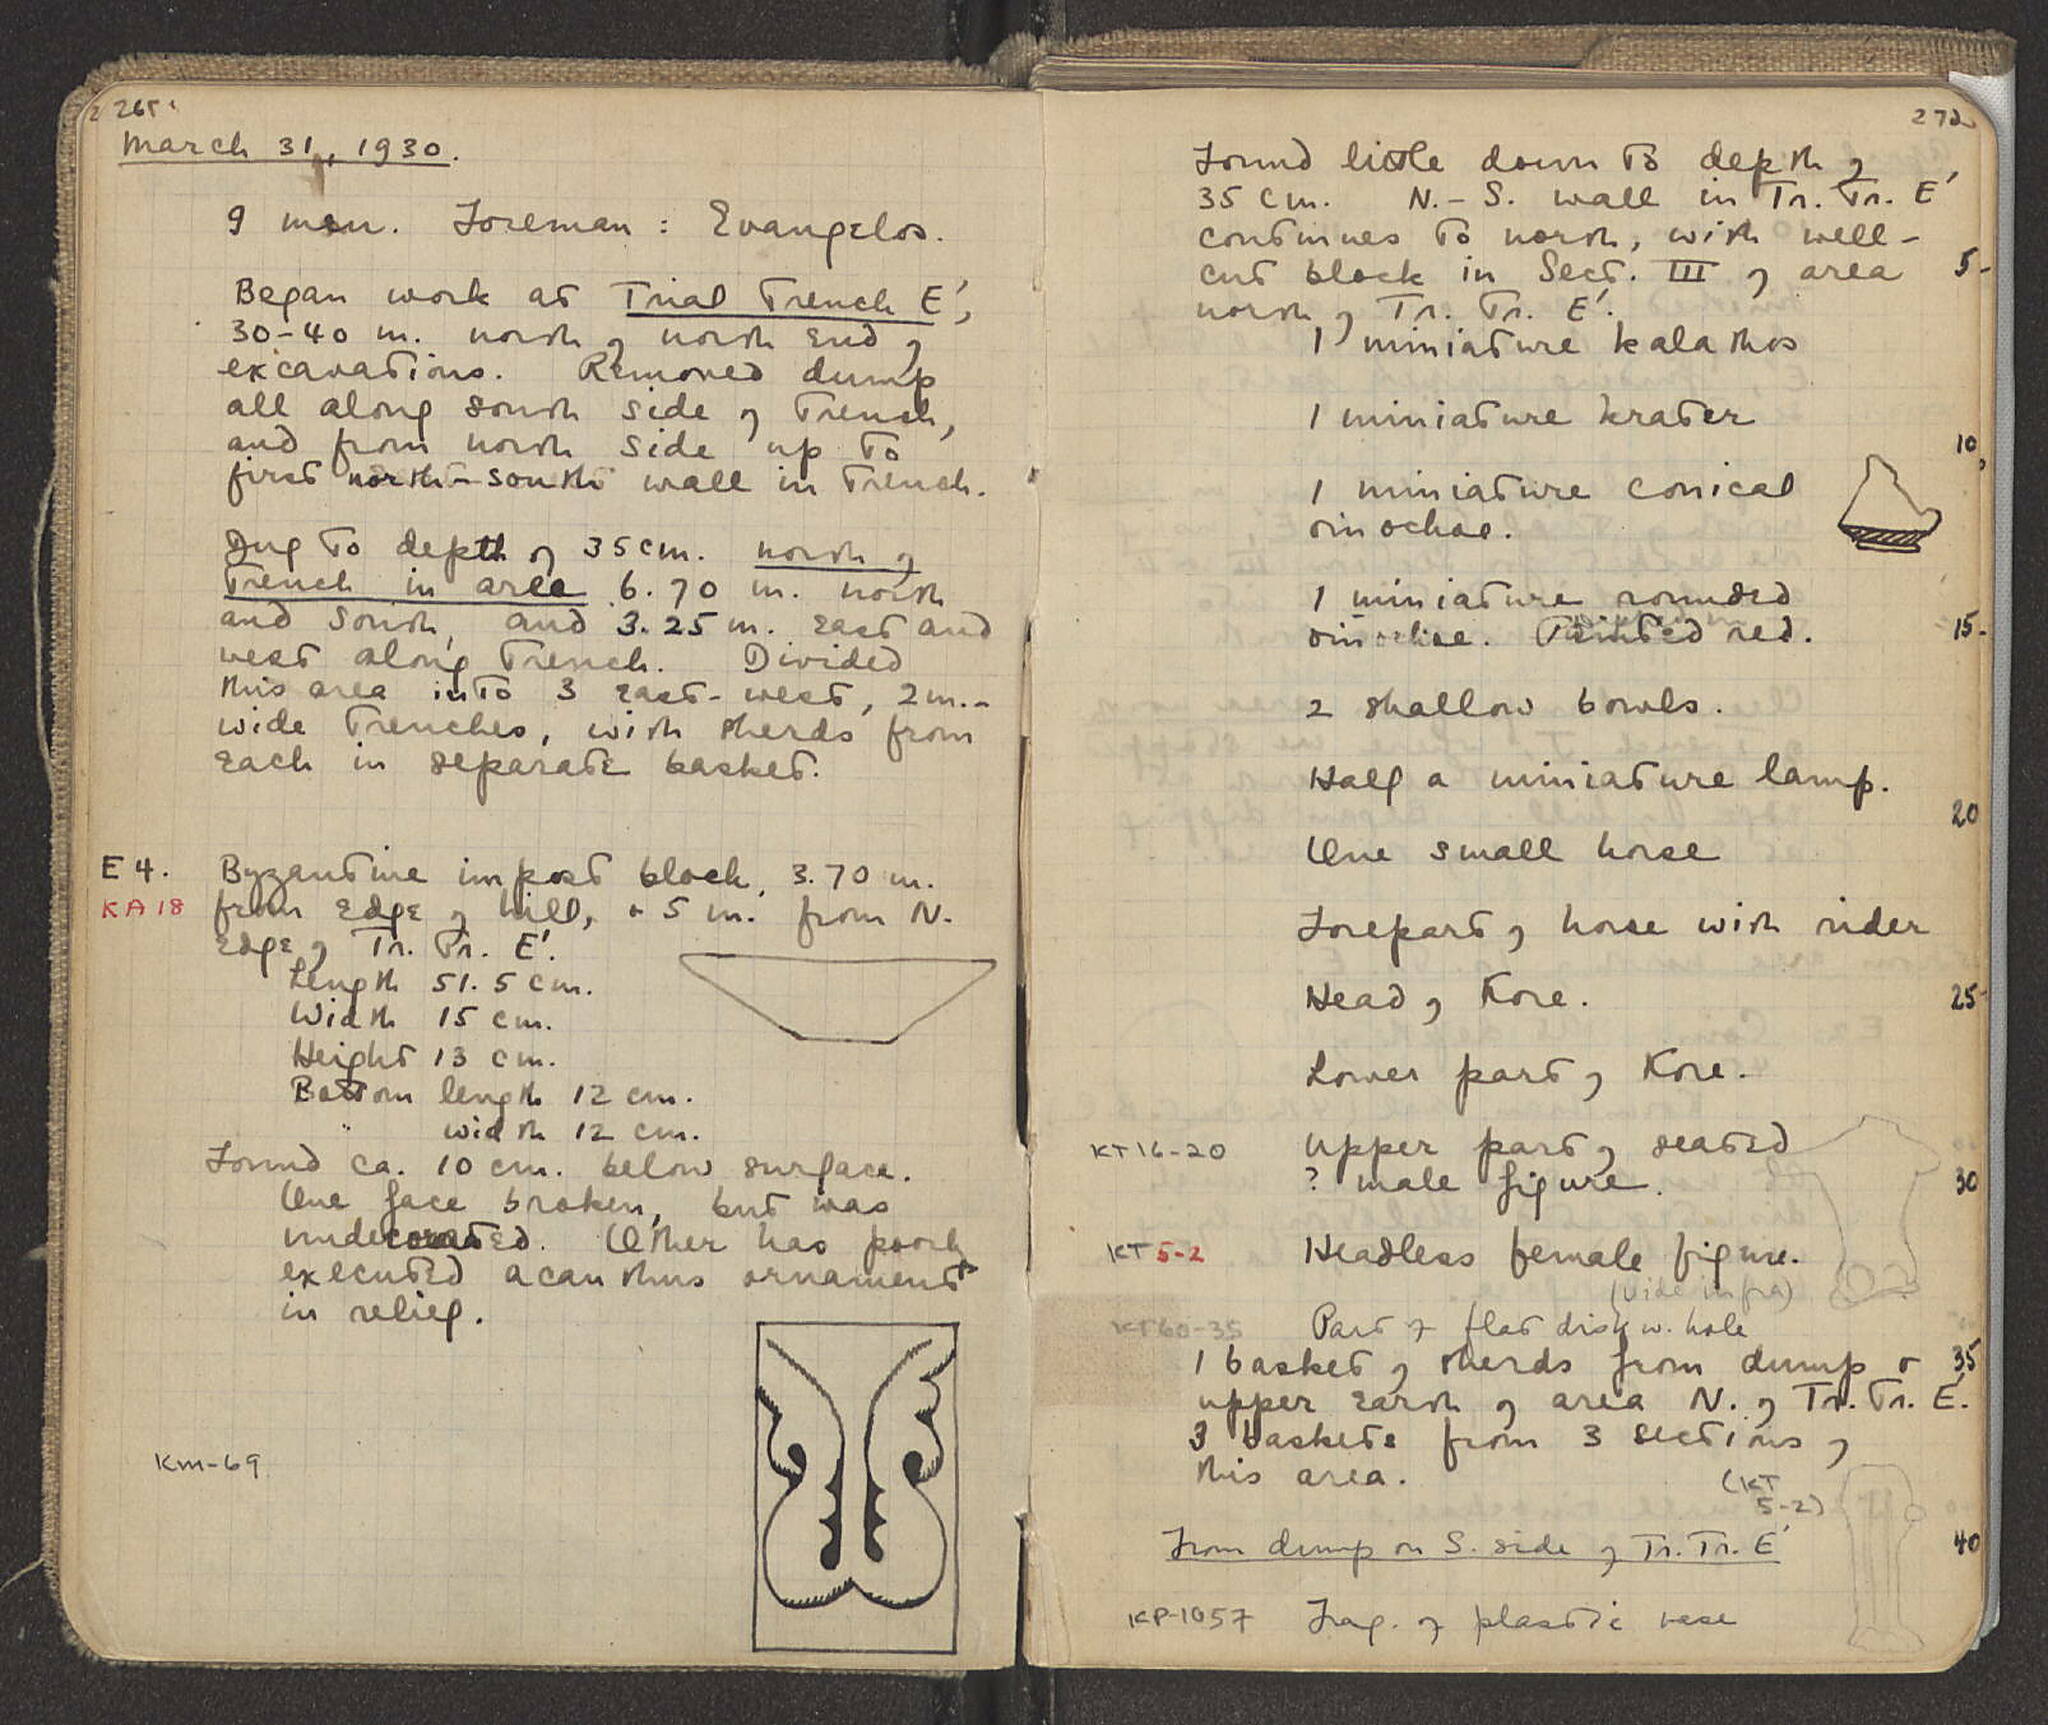 265
March 31, 1930.
9 men. Foreman: Evangelos.
Began work at Trial Trench E',
30-40 m. north of north end of
excavations. Removed dump
all along south side of trench,
and from north side up to
first north-south wall in trench.
Dug to depth of 35 cm. north of
trench in area 6.70 m. north
and south, and 3.25 m. east and
west along trench. Divided
this area into 3 east-west, 2m.-
wide trenches, with sherds from
each in separate basket.
E 4. Byzantine impost block, 3.70 m.
KA 18 from edge of hill, + 5 m. from N.
edge of Tr. Tr. E'.
Length 51.5 cm.
Width 15 cm.
Height 13 cm.
Bottom length 12 cm.
" width 12 cm.
Found ca. 10 cm. below surface.
One face broken, but was
undecorated. Other has poorly
executed acanthus ornaments
in relief.
KM-69
272
Found little down to depth of
35 cm. N.-S. wall in Tr. Tr. E'
continues to north, with well-
cut block in Sect. III of area 5-
north of Tr. Tr. E'.
1 miniature kalathos
1 miniature krater
10
1 miniature conical
oinochoe.
1 miniature rounded
oinochoe. Painted red. 15-
2 shallow bowls.
Half a miniature lamp.
20
One small horse
Forepart of horse with rider
Head of Kore. 25-
Lower part of Kore.
KT 16-20 Upper part of seated
? male figure. 30
KT 5-2 Headless female figure.
(vide infra)
KT60-35 Part of flat disk w. hole
1 basket of sherds from dump + 35
upper earth of area N. of Tr. Tr. E'.
3 baskets from 3 sections of
this area.
(KT
5-2)
From dump on S. side of Tr. Tr. E' 40
KP-1057 Frag. of plastic vase